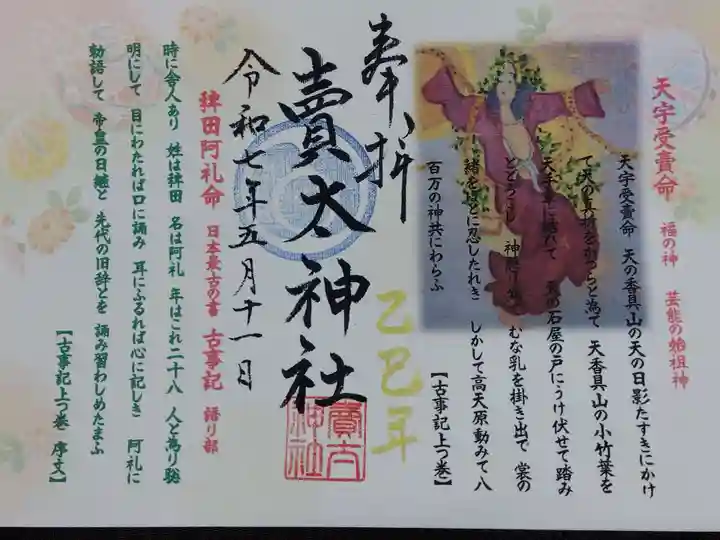 天宇受賣命 福の神 芸能の始祖神
天宇受賣命 天の香具山の天の日影たすきにかけ
て天の真拆を かづらと為て 天香具山の小竹葉を
天の石屋の戸にうけ伏せて踏み
とどろこし 神懸り むな乳を掛き出で 裳の
緒を ほとに忍したれき しかして高天原動みて八
百万の神共にわらふ
【古事記上つ巻】
奉拝
乙巳年
賣太神社
賣太神社
令和七年五月十一日
稗田阿礼命 日本最古の書 古事記 語り部
時に舎人あり 姓は稗田 名は阿礼 年はこれ二十八 人と為り聡
明にして 目にわたれば口に誦み 耳にふるれば心に記しき 阿礼に
勅語して 帝皇の日継と 先代の旧辞とを 誦み習わしめたまふ
【古事記上つ巻 序文】